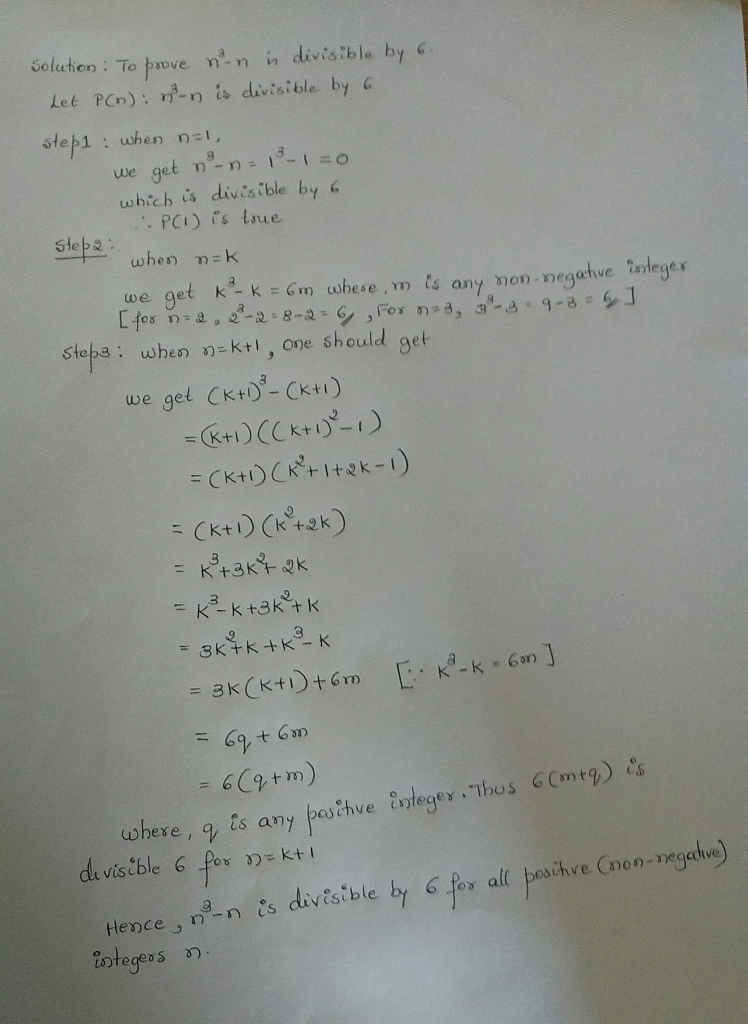 Solution: To prove n³-n is divisible by 6.
Let P(n): n³-n is divisible by 6
step1: when n=1,
we get n³-n = 1³-1 = 0
which is divisible by 6
∴ P(1) is true
Step2:
when n=k
we get k³-k = 6m where, m is any non-negative integer
[for n=2, 2³-2=8-2=6, For n=3, 3³-3=9-3=6]
step3: when n=k+1, one should get
we get (k+1)³-(k+1)
=(k+1)((k+1)²-1)
=(k+1)(k²+1+2k-1)
=(k+1)(k²+2k)
= k³+3k²+2k
= k³-k+3k²+k
= 3k²+k+k³-k
= 3k(k+1)+6m [∵ k³-k=6m]
= 6q+6m
= 6(q+m)
where, q is any positive integer. Thus 6(m+q) is
divisible 6 for n=k+1
Hence, n³-n is divisible by 6 for all positive (non-negative)
integers n.